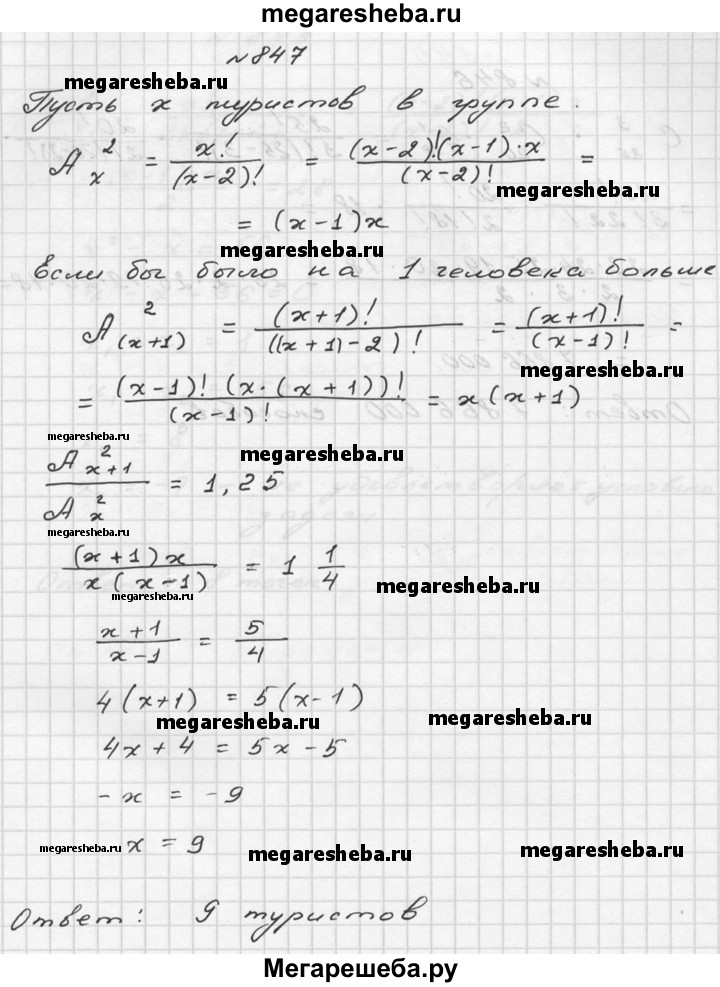 megaresheba.ru
№847
megaresheba.ru
Пусть x туристов в группе.
A_x^2 = x!/(x-2)! = (x-2)!(x-1)·x/(x-2)! =
megaresheba.ru
= (x-1)x
megaresheba.ru
Если бы было на 1 человека больше
A_(x+1)^2 = (x+1)!/((x+1)-2)! = (x+1)!/(x-1)! =
megaresheba.ru
= (x-1)!(x·(x+1))!/(x-1)! = x(x+1)
megaresheba.ru
megaresheba.ru
A_{x+1}^2/A_x^2 = 1,25
megaresheba.ru
(x+1)x/x(x-1) = 1 1/4
megaresheba.ru
megaresheba.ru
x+1/x-1 = 5/4
4(x+1) = 5(x-1)
megaresheba.ru
megaresheba.ru
4x+4 = 5x-5
-x = -9
megaresheba.ru
x = 9
megaresheba.ru
megaresheba.ru
Ответ: 9 туристов
Мегарешеба.ру